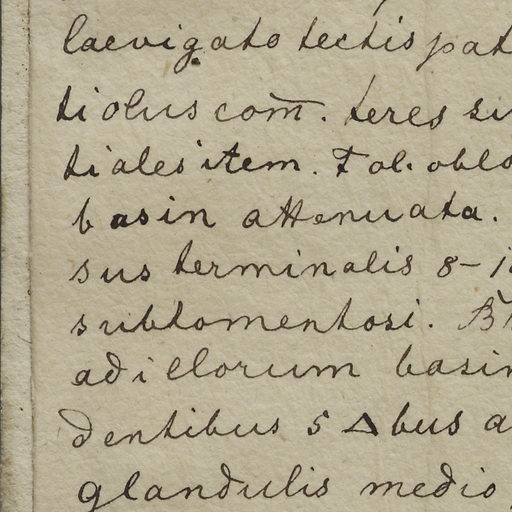 laevigato tectis pat
tiolus com̅. teres su
tiales item. Fol. oblo
basin attenuata.
sus terminalis 8-1
subtomentosi. B
adicllorum basin
dentibus 5 Δbus a
glandulis medio